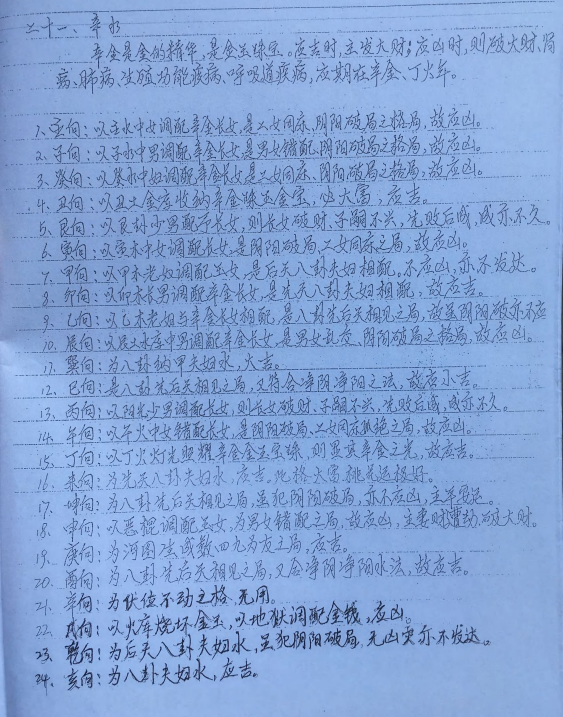 二十一、辛水
辛金是金的精华,是金玉珠宝。应吉时,主发大财;应凶时,则破大财、肾
病、肺病、生殖功能疾病、呼吸道疾病,应期在辛金、丁火年。
1、壬向:以壬水中女调配辛金长女,是二女同床,阴阳破局之格局,故应凶。
2、子向:以子水中男调配辛金长女是男女错配,阴阳破局之格局,故应凶。
3、癸向:以癸水中妇调配辛金长女是二女同床,阴阳破局之格局,故应凶。
4、丑向:以丑土金库收纳辛金珠玉金宝,必大富,应吉。
5、艮向:以艮卦少男配于长女,则长女破财、子嗣不兴,先败后成,成亦不久。
6、寅向:以寅木中女调配长女,是阴阳破局,二女同床之局,故应凶。
7、甲向:以甲木老妇调配长女,是后天八卦夫妇相配。不应凶,亦不发达。
8、卯向:以卯木长男调配辛金长女,是先天八卦夫妇相配,故应吉。
9、乙向:以乙木老妇与辛金长女相配,是八卦先后天相见之局,故虽阴阳破亦不应
10、辰向:以辰土水库中男调配辛金长女,是男女乱交、阴阳破局之格局,故应凶。
11、巽向:为八卦纳甲夫妇水,大吉。
12、巳向:是八卦先后天相见之局,又符合净阴净阳之法,故应小吉。
13、丙向:以阳光少男调配长女,则长女破财、子嗣不兴,先败后成,成亦不久。
14、午向:以午火中女错配长女,是阴阳破局、二女同床孤绝之局,故应凶。
15、丁向:以丁火灯光照耀辛金金玉宝珠,则显其辛金之光,故应吉。
16、未向:为先天八卦夫妇水,应吉,此格大富桃花运极好。
17、坤向:为八卦先后天相见之局,虽犯阴阳破局,亦不应凶,主平稳运。
18、申向:以恶棍调配美女,为男女错配之局,故应凶,主妻财曹劫、破大财。
19、庚向:为河图生成数四九为友之局,应吉。
20、酉向:为八卦先后天相见之局,又合净阴净阳水法,故应吉。
21、辛向:为伏位不动之格,无用。
22、戌向:以火库烧坏金玉,以地狱调配金钱,应凶。
23、乾向:为后天八卦夫妇水,虽犯阴阳破局,无凶灾亦不发达。
24、亥向:为八卦夫妇水,应吉。